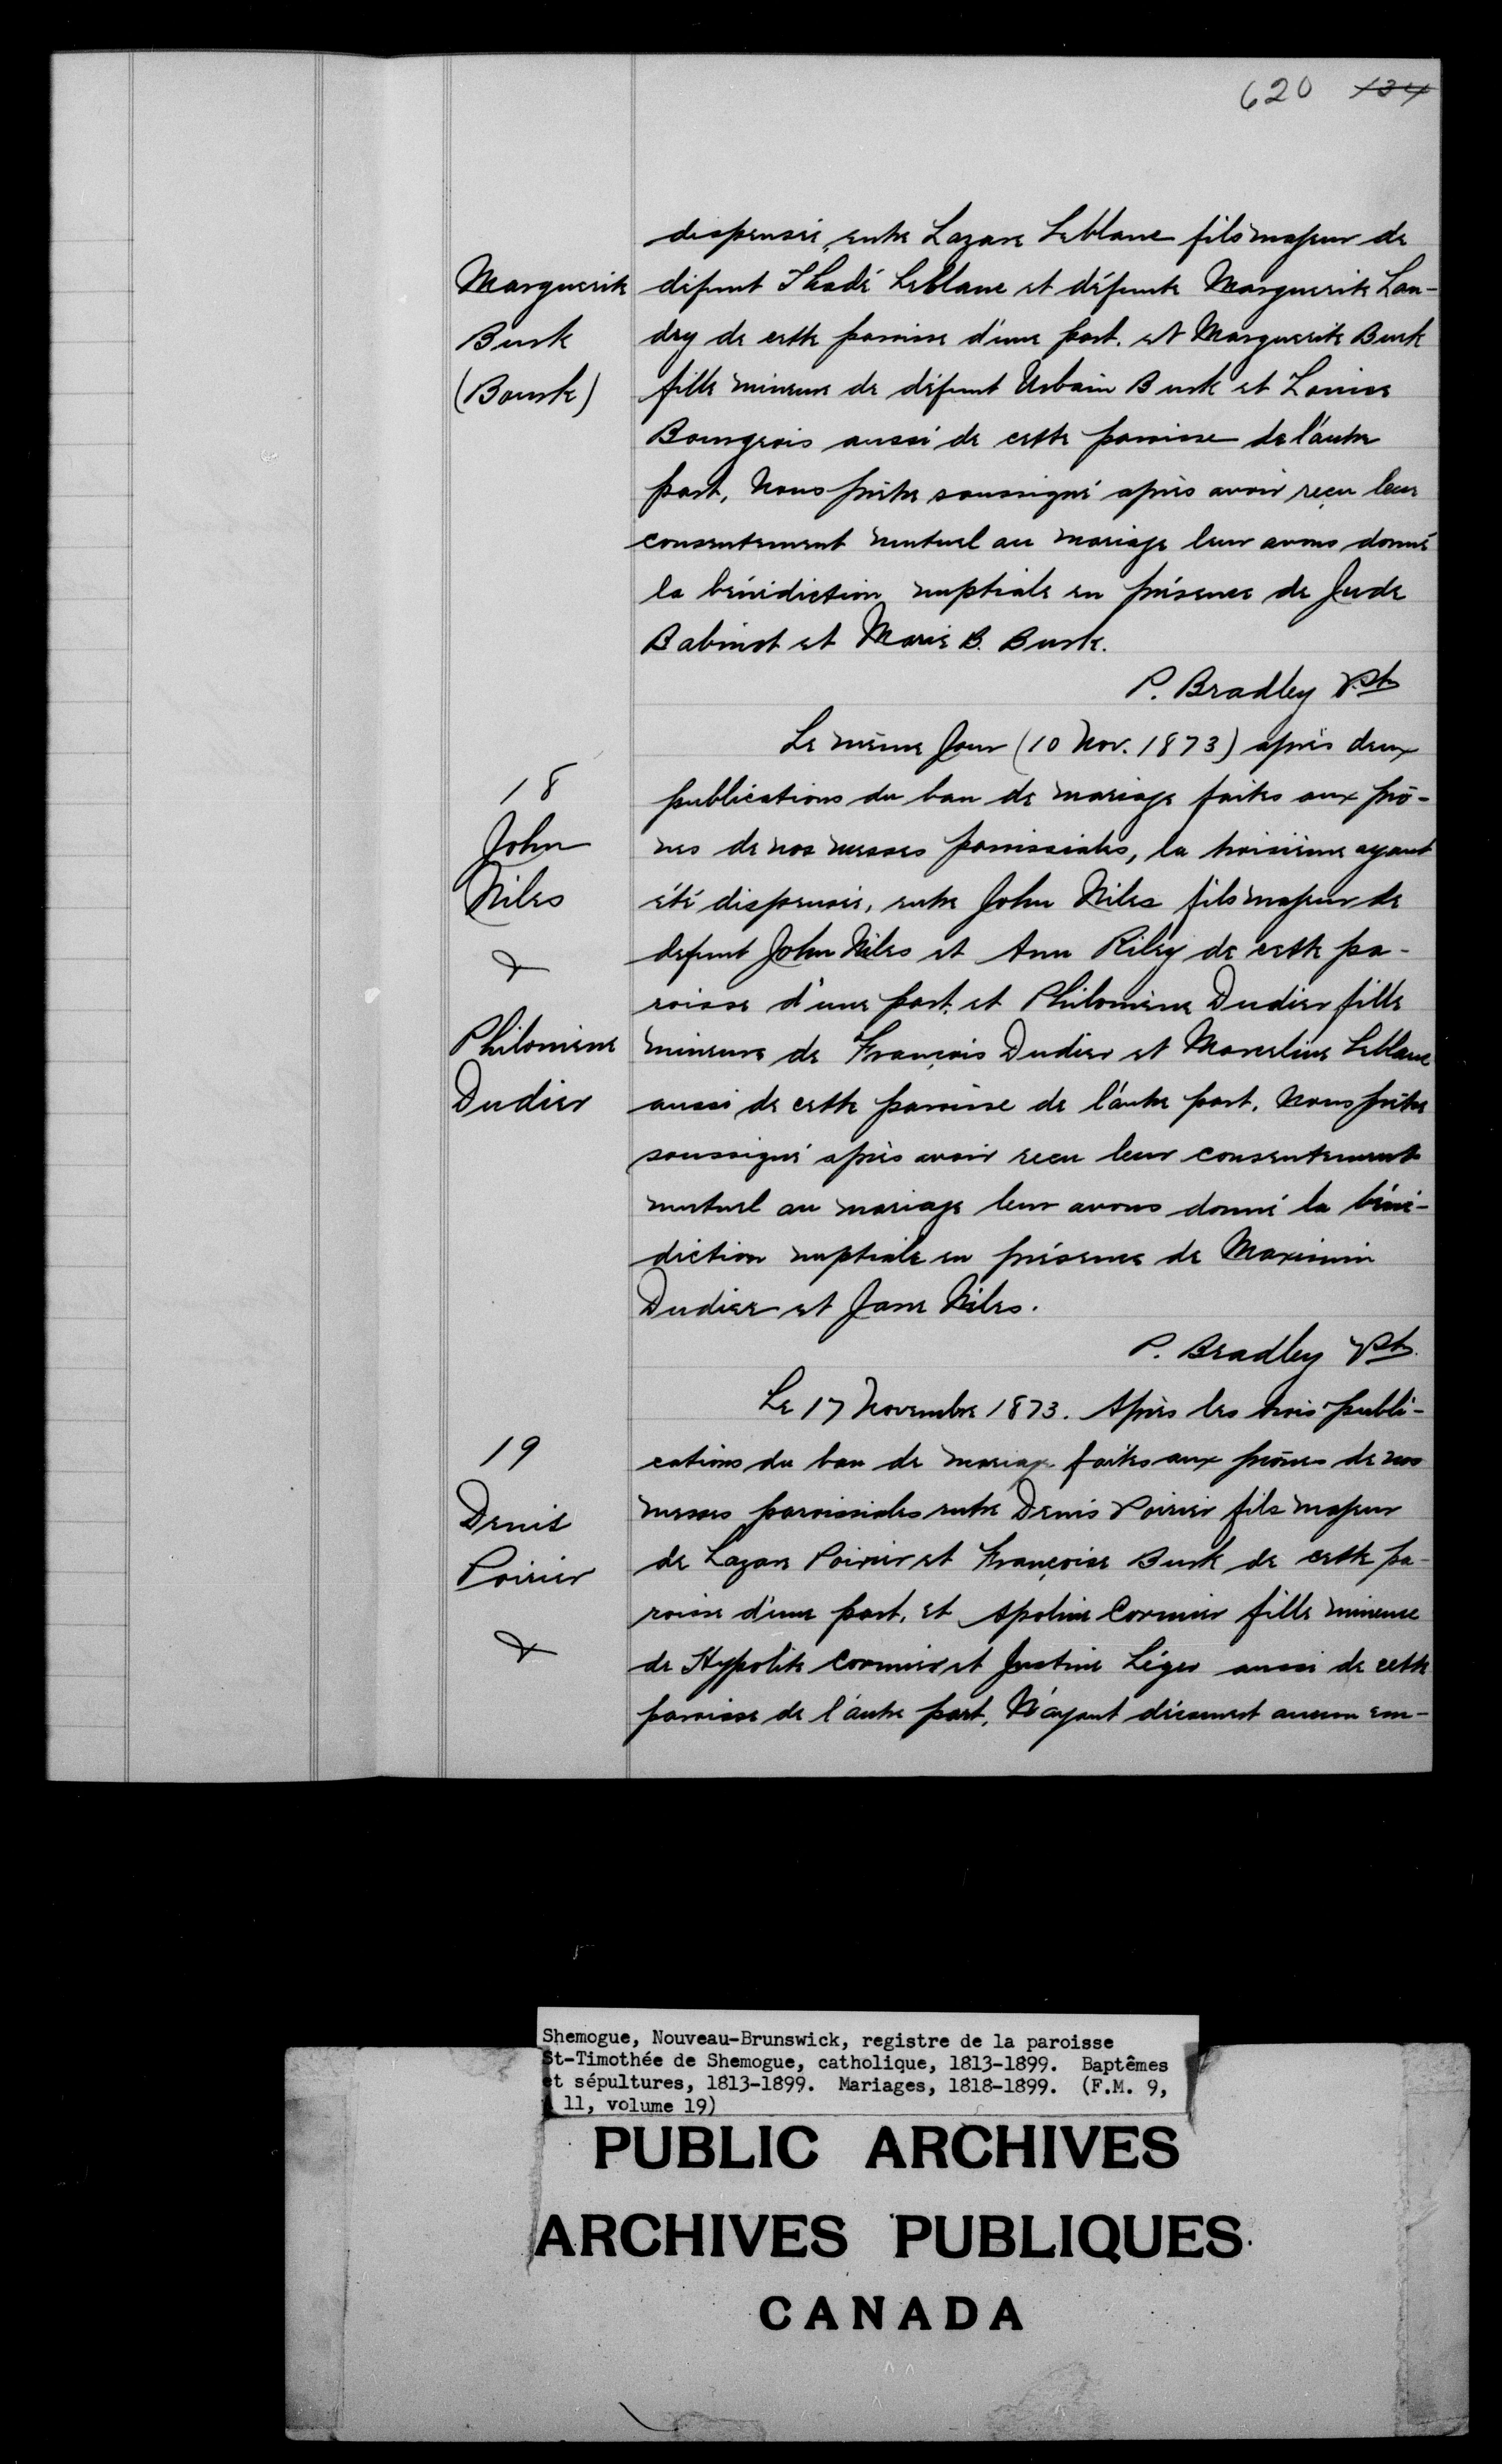 620 134
dispensée, entre Lazare Leblanc fils majeur de
Marguerite défunt Thadé Leblanc et défunte Marguerite Lan-
Burk dry de cette paroisse d'une part. et Marguerite Burk
(Bourk) fille mineure de défunt Urbain Burk et Louise
Bourgeois aussi de cette paroisse de l'autre
part, Nous prêtre soussigné après avoir reçu leur
consentement mutuel au mariage leur avons donné
la bénédiction nuptiale en présence de Jude
Babinot et Marie B. Burk.
P. Bradley Pst
Le même Jour (10 Nov. 1873) après deux
18 publications du ban de mariage faites aux prô-
John nes de nos messes paroissiales, la troisième ayant
Niles été dispensée, entre John Niles fils majeur de
& defunt John Niles et Ann Riley de cette pa-
roisse d'une part. et Philomène Dudier fille
Philomène mineure de François Dudier et Marceline Leblanc
Dudier aussi de cette paroisse de l'autre part. Nous prêtre
soussigné après avoir recu leur consentement
mutuel au mariage leur avons donné la béné-
diction nuptiale en présence de Maximin
Dudier et Jane Niles.
P. Bradley Pst.
Le 17 Novembre 1873. Après les trois publi-
19 cations du ban de mariage faites aux prônes de nos
Denis messes paroissiales entre Denis Poirier fils majeur
Poirier de Lazare Poirier et Françoise Burk de cette pa-
roisse d'une part, et Apoline Cormier fille mineure
& de Hypolite Cormier et Justine Léger aussi de cette
paroisse de l'autre part, N'ayant découvert aucun em-
Shemogue, Nouveau-Brunswick, registre de la paroisse
St-Timothée de Shemogue, catholique, 1813-1899. Baptêmes
et sépultures, 1813-1899. Mariages, 1818-1899. (F.M. 9,
11, volume 19)
PUBLIC ARCHIVES
ARCHIVES PUBLIQUES
CANADA